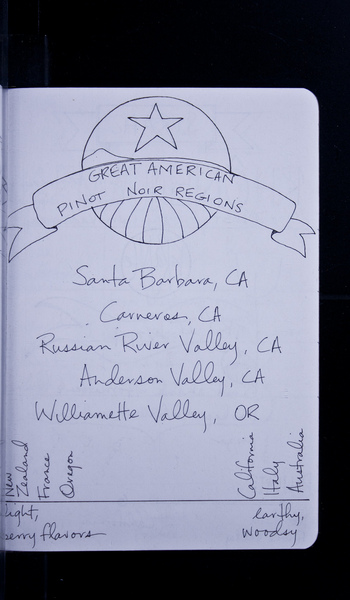 GREAT AMERICAN
PINOT NOIR REGIONS
Santa Barbara, CA
Carneros, CA
Russian River Valley, CA
Anderson Valley, CA
Williamette Valley, OR
New Zealand
France
Oregon
California
Italy
Australia
light,
berry flavors
earthy,
woodsy